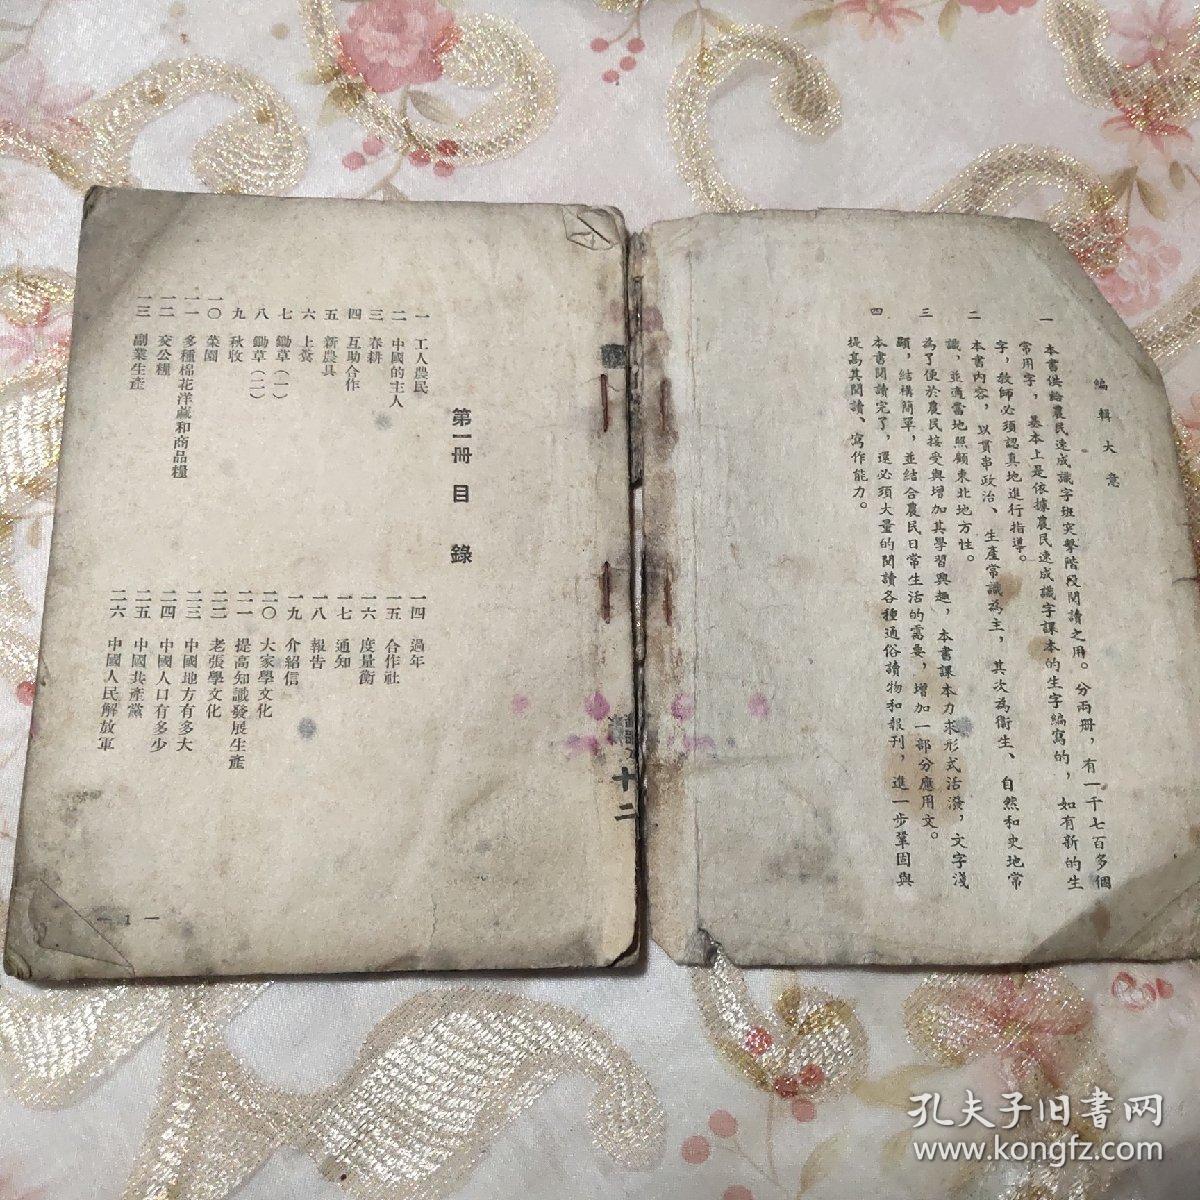 編輯大意
一 本書供給農民速成識字班突擊階段閱讀之用。分兩册，有一千七百多個
常用字，基本上是依據農民速成識字課本的生字編寫的，如有新的生
字，教師必須認真地進行指導。
二 本書内容，以貫串政治、生產常識為主，其次為衞生、自然和史地常
識，並適當地照顧東北地方性。
三 為了便於農民接受與增加其學習興趣，本書課本力求形式活潑，文字淺
顯，結構簡單，並結合農民日常生活的需要，增加一部分應用文。
四 本書閱讀完了，還必須大量的閱讀各種通俗讀物和報刊，進一步鞏固與
提高其閱讀、寫作能力。
第一冊 目錄
一 工人農民
二 中國的主人
三 春耕
四 互助合作
五 新農具
六 上糞
七 鋤草（一）
八 鋤草（二）
九 秋收
一〇 菜園
一一 多種棉花洋蔴和商品糧
一二 交公糧
一三 副業生產
一四 過年
一五 合作社
一六 度量衡
一七 通知
一八 報告
一九 介紹信
二〇 大家學文化
二一 提高知識發展生產
二二 老張學文化
二三 中國地方有多大
二四 中國人口有多少
二五 中國共產黨
二六 中國人民解放軍
— 1 —
十二
孔夫子旧書网
www.kongfz.com